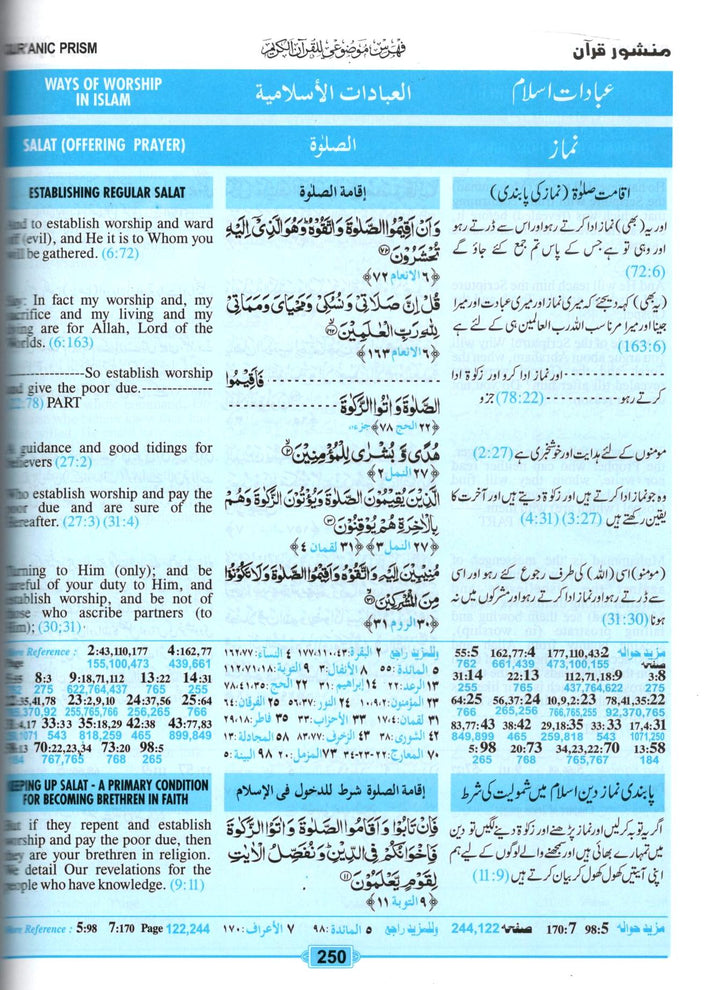 QUR'ANIC PRISM
فهرس موضوعي للقرآن الكريم
منشور قرآن
WAYS OF WORSHIP
IN ISLAM
العبادات الأسلامية
عبادات اسلام
SALAT (OFFERING PRAYER)
الصلوٰة
نماز
ESTABLISHING REGULAR SALAT
And to establish worship and ward
(evil), and He it is to Whom you
will be gathered. (6:72)
Say: In fact my worship and, my
sacrifice and my living and my
are for Allah, Lord of the
Worlds. (6:163)
---------------So establish worship
and give the poor due.--------------
(22:78) PART
A guidance and good tidings for
believers (27:2)
Who establish worship and pay the
poor due and are sure of the
Hereafter. (27:3) (31:4)
Turning to Him (only); and be
careful of your duty to Him, and
establish worship, and be not of
those who ascribe partners (to
Him); (30;31)
More Reference : 2:43,110,177 4:162,77
Page 155,100,473 439,661
8:3 9:18,71,112 13:22 14:31
275 622,764,437 765 255
35,41,78 23:2,9,10 24:37,56 25:64
370,92 255,765,766 256,265 766
4,17 33:33 35:18,29 42:38 43:77,83
1071 543 818,259 465 899,849
13 70:22,23,34 73:20 98:5
184 767,765 768 265
KEEPING UP SALAT - A PRIMARY CONDITION
FOR BECOMING BRETHREN IN FAITH
But if they repent and establish
worship and pay the poor due, then
they are your brethren in religion.
We detail Our revelations for the
people who have knowledge. (9:11)
More Reference : 5:98 7:170 Page 122,244
إقامة الصلوٰة
وَاَنْ اَقِيْمُوا الصَّلٰوةَ وَاتَّقُوْهُ وَهُوَ الَّذِيْٓ اِلَيْهِ
تُحْشَرُوْنَ ۷۲
﴿٦ الانعام ٧٢﴾
قُلْ اِنَّ صَلَاتِيْ وَنُسُكِيْ وَمَحْيَايَ وَمَمَاتِيْ
لِلّٰهِ رَبِّ الْعٰلَمِيْنَ
﴿٦ الانعام ١٦٣﴾
---------------- فَاَقِيْمُوا
الصَّلٰوةَ وَاٰتُوا الزَّكٰوةَ ----------------
﴿٢٢ الحج ٧٨﴾ جزء
هُدًى وَّ بُشْرٰى لِلْمُؤْمِنِيْنَ
﴿٢٧ النمل ٢﴾
الَّذِيْنَ يُقِيْمُوْنَ الصَّلٰوةَ وَيُؤْتُوْنَ الزَّكٰوةَ وَهُمْ
بِالْاٰخِرَةِ هُمْ يُوْقِنُوْنَ
﴿٢٧ النمل ٣﴾ ﴿٣١ لقمان ٤﴾
مُنِيْبِيْنَ اِلَيْهِ وَاتَّقُوْهُ وَاَقِيْمُوا الصَّلٰوةَ وَلَا تَكُوْنُوْا
مِنَ الْمُشْرِكِيْنَ
﴿٣٠ الروم ٣١﴾
وللمزيد راجع ٢ البقرة: ٤٣-١١٠-١٧٧ ٤ النساء: ٧٧-١٦٢
٥ المائدة: ٥٥ ٨ الأنفال: ٣ ٩ التوبة: ١٨-٧١-١١٢
١٣ الرعد: ٢٢ ١٤ إبراهيم: ٣١ ٢٢ الحج: ٣٥-٤١-٧٨
٢٣ المؤمنون: ٢-٩-١٠ ٢٤ النور: ٣٧-٥٦ ٢٥ الفرقان: ٦٤
٣١ لقمان: ٤-١٧ ٣٣ الأحزاب: ٣٣ ٣٥ فاطر: ١٨-٢٩
٤٢ الشورى: ٣٨ ٤٣ الزخرف: ٧٧-٨٣ ٥٨ المجادلة: ١٣
٧٠ المعارج: ٢٢-٢٣-٣٤ ٧٣ المزمل: ٢٠ ٩٨ البينة: ٥
إقامة الصلوة شرط للدخول فی الإسلام
فَاِنْ تَابُوْا وَاَقَامُوا الصَّلٰوةَ وَاٰتَوُا الزَّكٰوةَ
فَاِخْوَانُكُمْ فِي الدِّيْنِ وَنُفَصِّلُ الْاٰيٰتِ
لِقَوْمٍ يَّعْلَمُوْنَ ۱۱
﴿٩ التوبة ١١﴾
وللمزيد راجع ٥ المائدة: ٩٨ ٧ الأعراف: ١٧٠
اقامت صلوٰة (نماز کی پابندی)
اور یہ (بھی) نماز ادا کرتے رہو اور اس سے ڈرتے رہو
اور وہی تو ہے جس کے پاس تم جمع کئے جاؤ گے
(72:6)
(یہ بھی) کہہ دیجئے کہ میری نماز اور میری عبادت اور میرا
جینا اور میرا مرنا سب اللہ رب العالمین ہی کے لئے ہے
(163:6)
---------- اور نماز ادا کرو اور زکوٰة ادا
کرتے رہو ---------- (78:22) جزو
مومنوں کے لئے ہدایت اور خوشخبری ہے (2:27)
وہ جو نماز ادا کرتے ہیں اور زکوٰة دیتے ہیں اور آخرت کا
یقین رکھتے ہیں (3:27) (4:31)
(مومنو) اسی (اللہ) کی طرف رجوع کئے رہو اور اسی
سے ڈرتے رہو اور نماز ادا کرتے رہو اور مشرکوں میں نہ
ہونا (31:30)
مزید حوالہ 177,110,43:2 162,77:4 55:5
صفحہ 473,100,155 661,439 762
3:8 112,71,18:9 22:13 31:14
275 437,764,622 765 255
78,41,35:22 10,9,2:23 56,37:24 64:25
92,370,765 766,765,255 265,256 766
17,4:31 33:33 29,18:35 38:42 83,77:43
1071,250 543 259,818 465 849,899
13:58 34,23,22:70 20:73 5:98
184 765,767 768 265
پابندی نماز دین اسلام میں شمولیت کی شرط
اگر یہ توبہ کر لیں اور نماز پڑھنے اور زکوٰة دینے لگیں تو دین
میں تمہارے بھائی ہیں اور سمجھنے والے لوگوں کے لیے ہم
اپنی آیتیں کھول کھول کر بیان کرتے ہیں (11:9)
مزید حوالہ 98:5 170:7 صفحہ 244,122
250